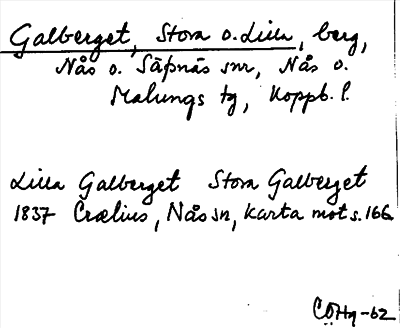 Galberget, Stora o. Lilla, berg,
Nås o. Säfsnäs snr, Nås o.
Malungs tg, Koppb. l.
Lilla Galberget Stora Galberget
1837 Crælius, Nås sn, karta mot s. 166
CÖHg-62